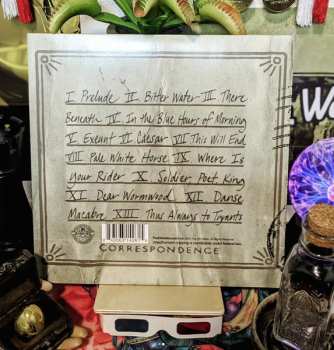 I Prelude II Bitter Water III There
Beneath IV In the Blue Hours of Morning
V Exeunt VI Caesar VII This Will End
VIII Pale White Horse IX Where Is
Your Rider X Soldier Poet King
XI Dear Wormwood XII Danse
Macabre XIII Thus Always to Tyrants
CORRESPONDENCE